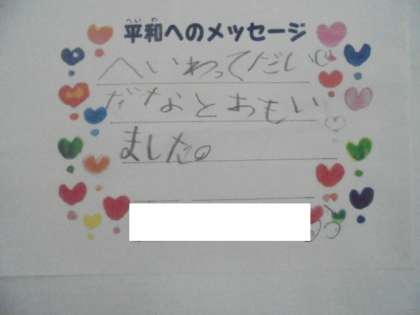 平和へのメッセージ
へいわってだいじ
だなとおもい
ました。